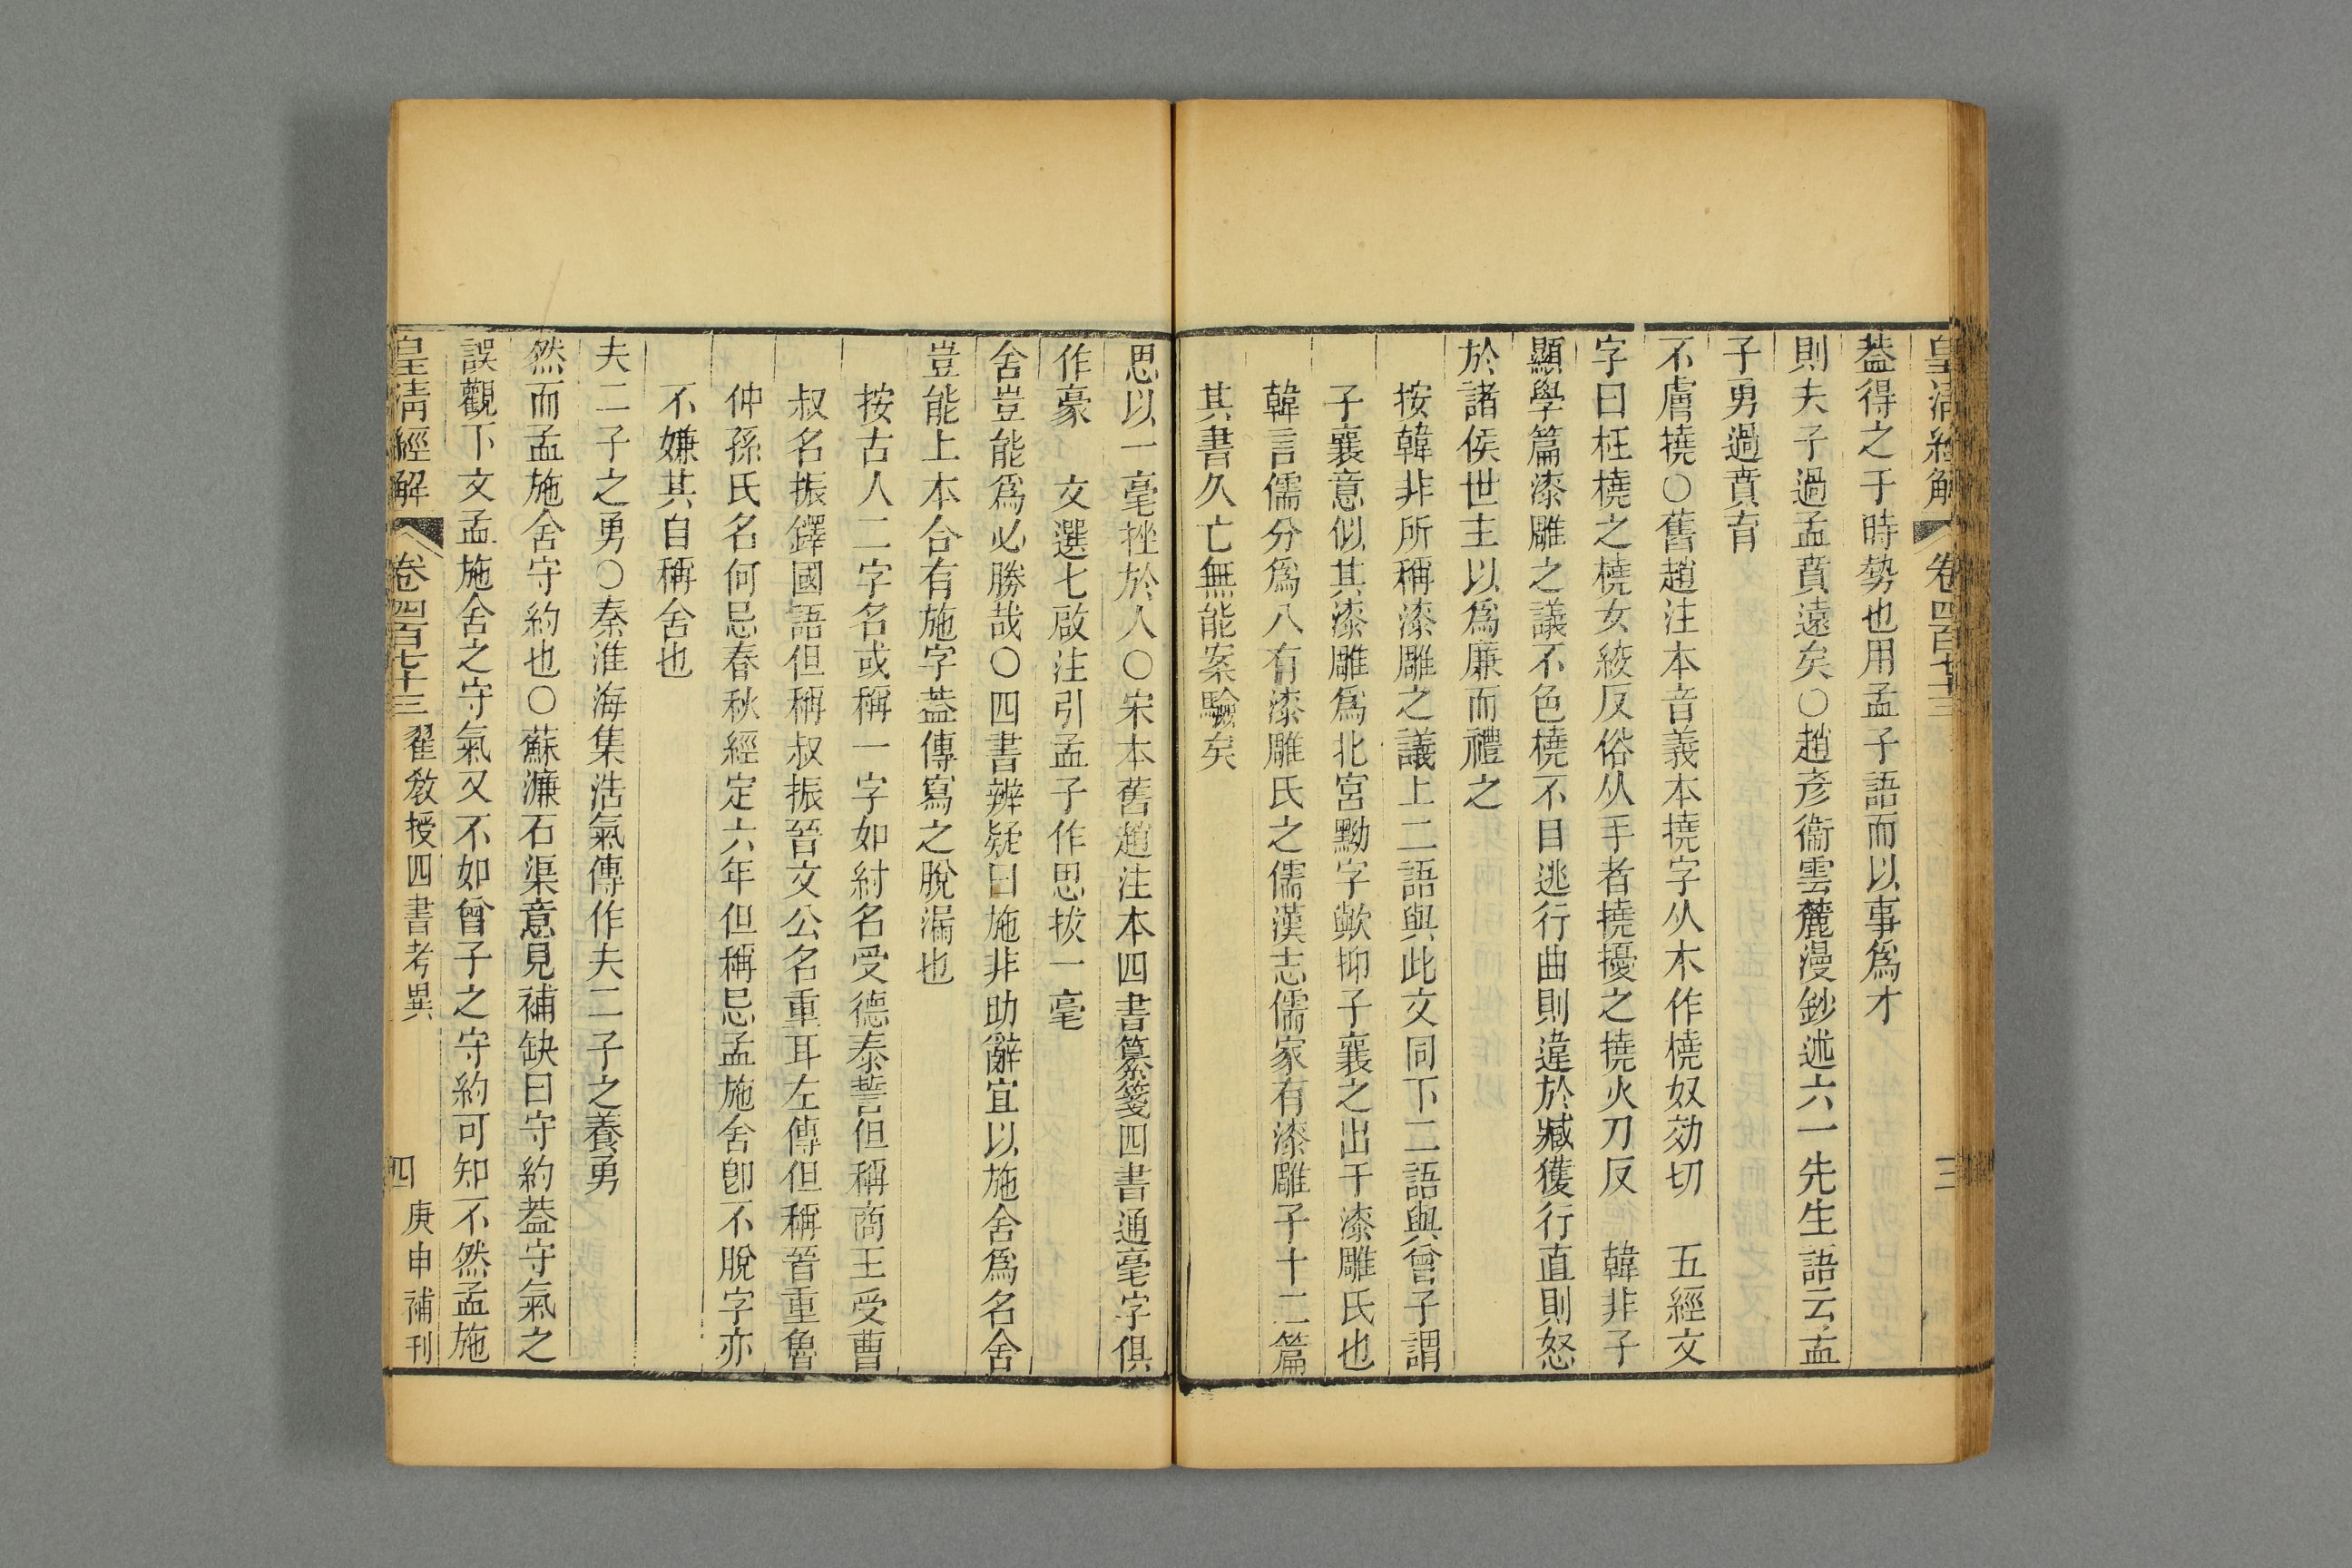 皇清經解 卷四百七十三 三
葢得之于時勢也用孟子語而以事爲才
則夫子過孟賁遠矣○趙彥衞雲麓漫鈔述六一先生語云孟
子勇過賁育
不膚撓○舊趙注本音義本撓字从木作橈奴効切 五經文
字曰枉橈之橈女絞反俗从手者撓擾之撓火刀反 韓非子
顯學篇漆雕之議不色橈不目逃行曲則違於臧獲行直則怒
於諸侯世主以爲廉而禮之
按韓非所稱漆雕之議上二語與此文同下二語與曾子謂
子襄意似其漆雕爲北宮黝字歟抑子襄之出于漆雕氏也
韓言儒分爲八有漆雕氏之儒漢志儒家有漆雕子十二篇
其書久亡無能案驗矣
思以一毫挫於人○宋本舊趙注本四書纂箋四書通毫字俱
作豪 文選七啟注引孟子作思拔一毫
舍豈能爲必勝哉○四書辨疑曰施非助辭宜以施舍爲名舍
豈能上本合有施字葢傳寫之脫漏也
按古人二字名或稱一字如紂名受德泰誓但稱商王受曹
叔名振鐸國語但稱叔振晉文公名重耳左傳但稱晉重魯
仲孫氏名何忌春秋經定六年但稱忌孟施舍卽不脫字亦
不嫌其自稱舍也
夫二子之勇○秦淮海集浩氣傳作夫二子之養勇
然而孟施舍守約也○蘇濂石渠意見補缺曰守約葢守氣之
誤觀下文孟施舍之守氣又不如曾子之守約可知不然孟施
皇清經解 卷四百七十三 翟敎授四書考異 四 庚申補刊